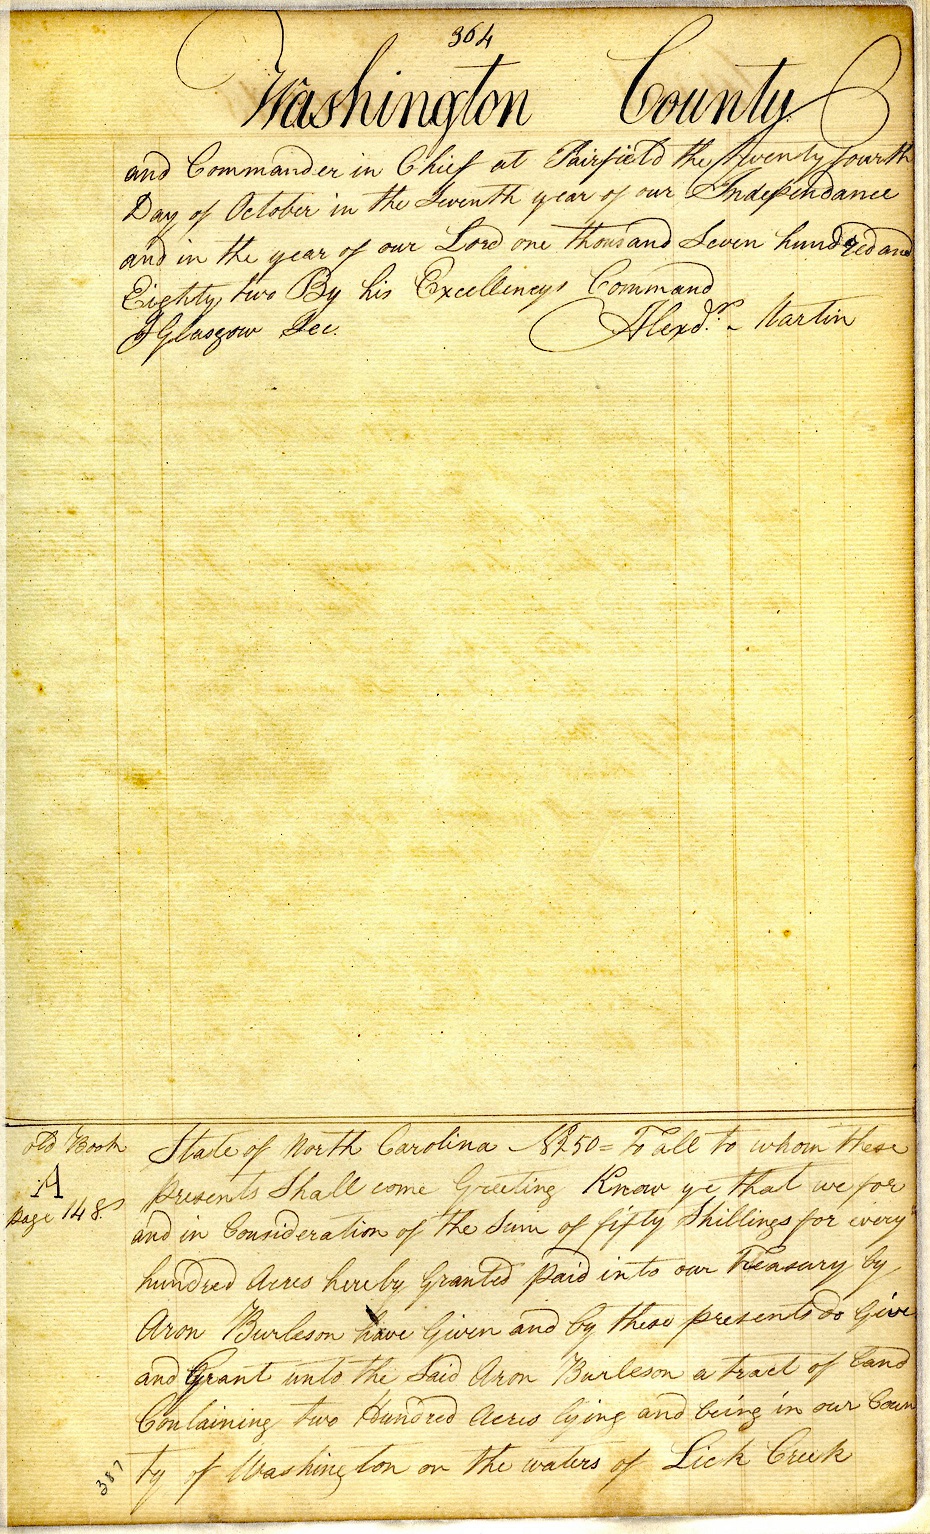 364
Washington County
and Commander in Chief at Fairfield the Twenty fourth
Day of October in the Seventh year of our Independance
and in the year of our Lord one thousand Seven hundred and
Eighty two By his Excellencys Command
J Glasgow Sec. Alexdr. Martin
old Book
A
page 148
State of North Carolina No 250 = To all to whom these
presents Shall come Greeting Know ye that we for
and in Consideration of the Sum of fifty Shillings for every
hundred Acres hereby Granted paid into our Treasury by
Aron Burleson have Given and by these presents do Give
and Grant unto the Said Aron Burleson a tract of Land
Containing two Hundred Acres lying and being in our Coun
ty of Washington on the waters of Lick Creek
387